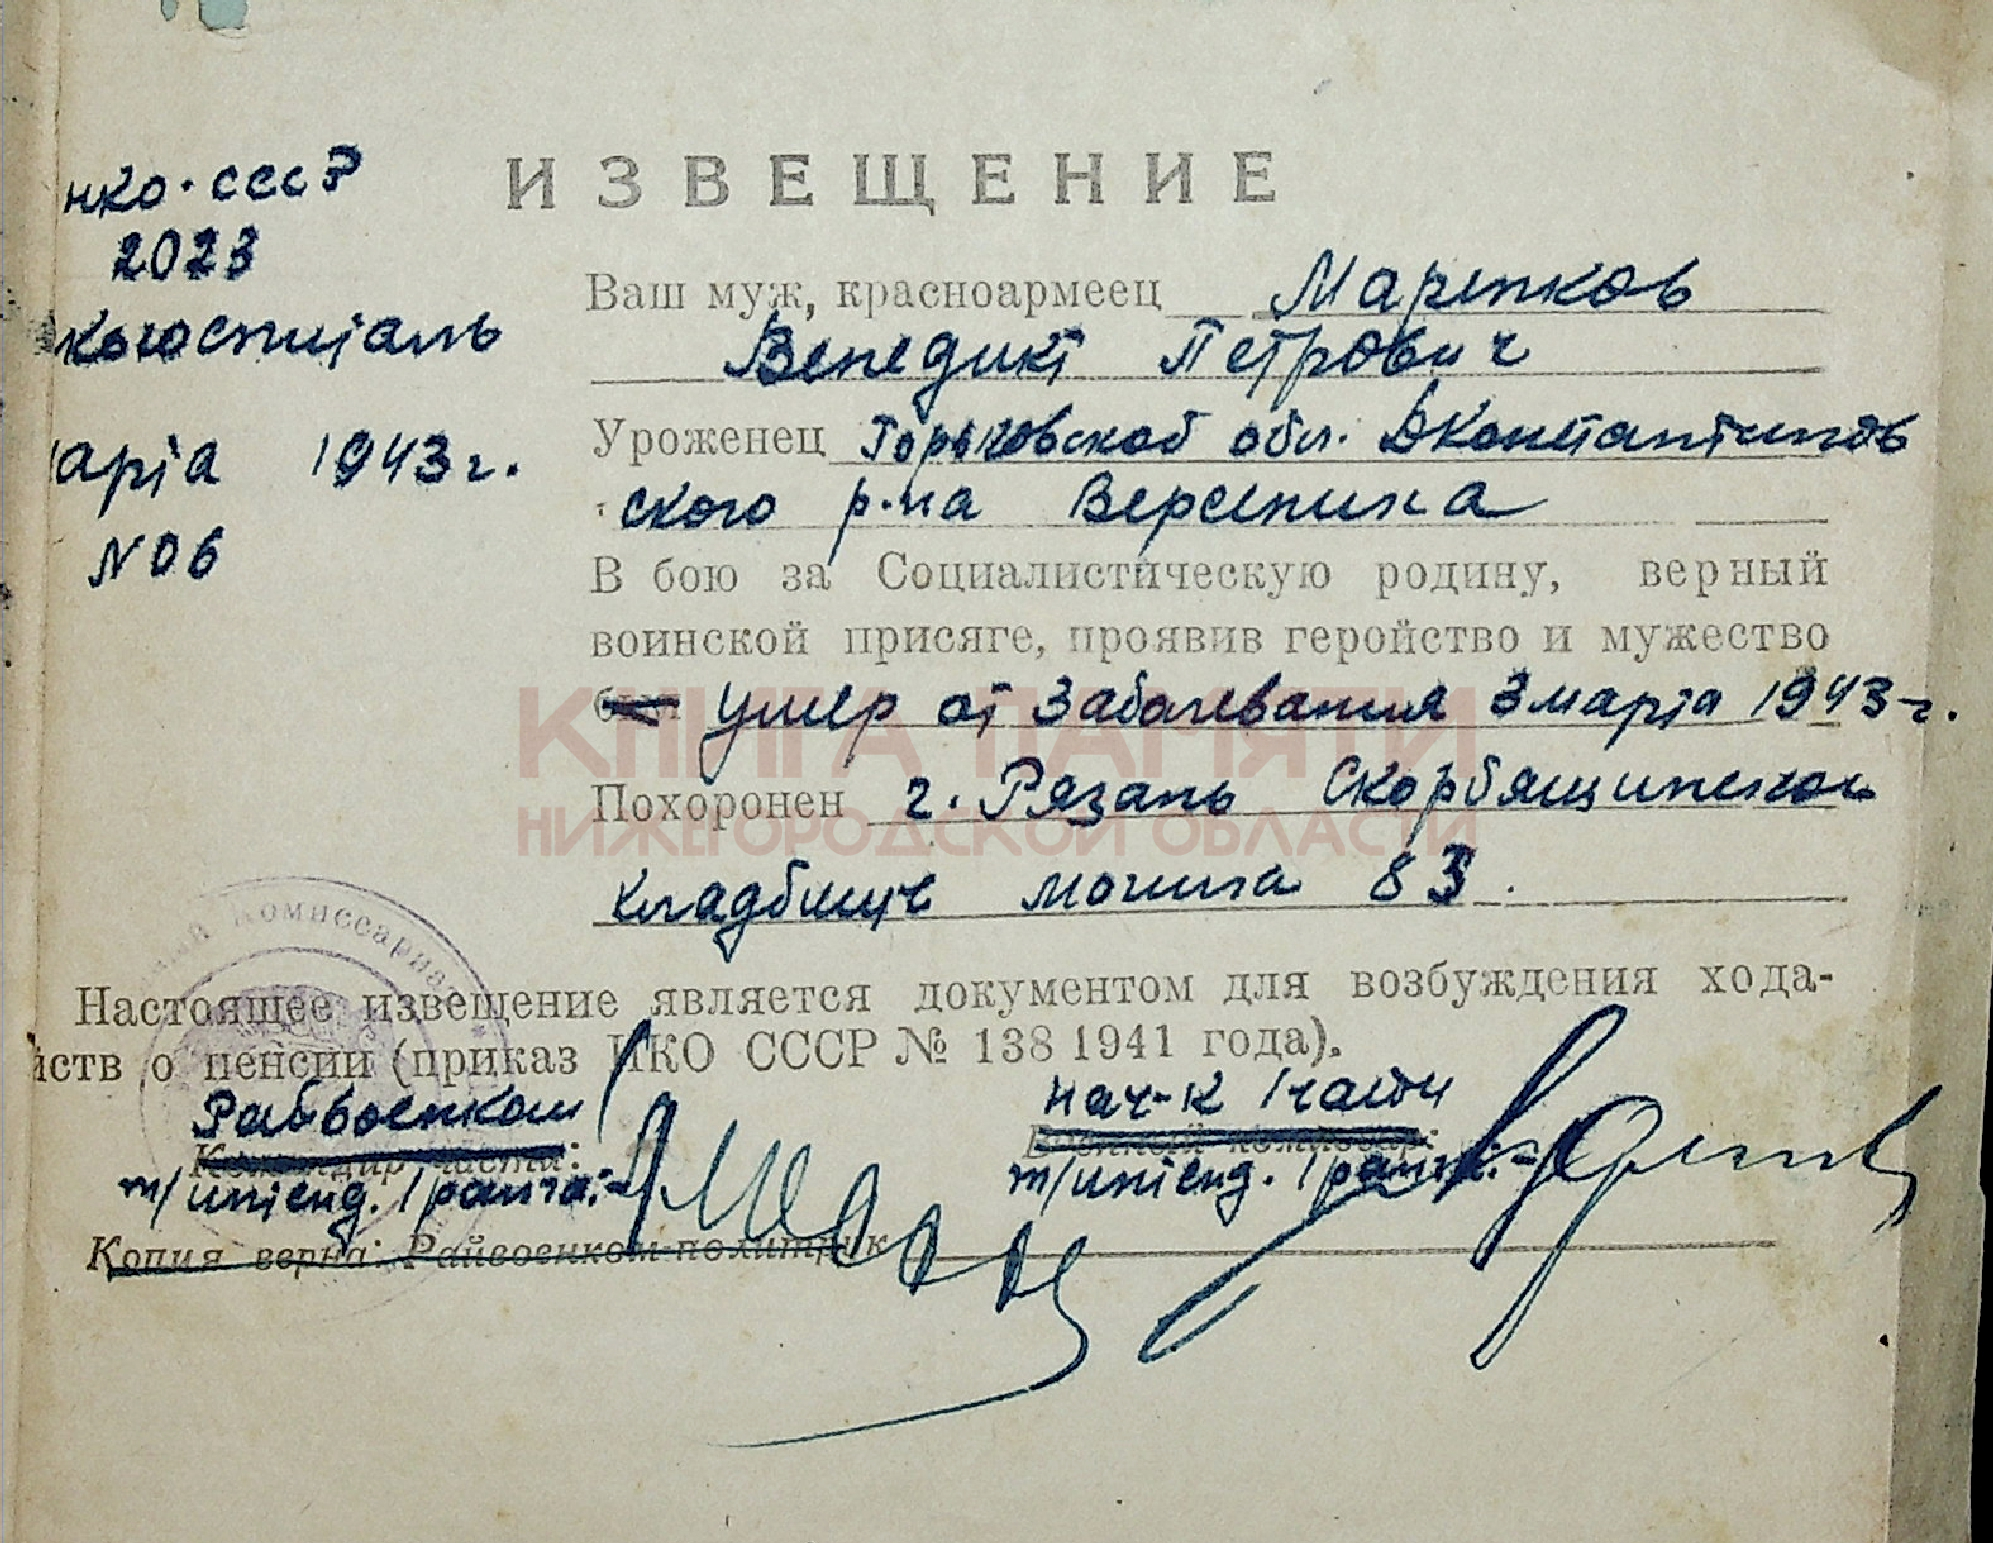 ИЗВЕЩЕНИЕ
НКО·СССР
2023
когоспиталь
арта 1943 г.
№ 06
Ваш муж, красноармеец Маренков
Венедикт Петрович
Уроженец Горьковской обл. ДКонстантинов
ского р-на Версенина
В бою за Социалистическую родину, верный
воинской присяге, проявив геройство и мужество
был умер от заболевания 3 марта 1943 г.
Похоронен г. Рязань Скорбященском
кладбище могила 83.
Комиссариат
Настоящее извещение является документом для возбуждения хода-
йств о пенсии (приказ НКО СССР № 138 1941 года).
Райвоенком
Командир части:
т/интенд. I ранга:
нач-к I части
Военный комиссар:
т/интенд. I ранга:
Копия верна: Райвоенком-политрук
КНИГА ПАМЯТИ
НИЖЕГОРОДСКОЙ ОБЛАСТИ